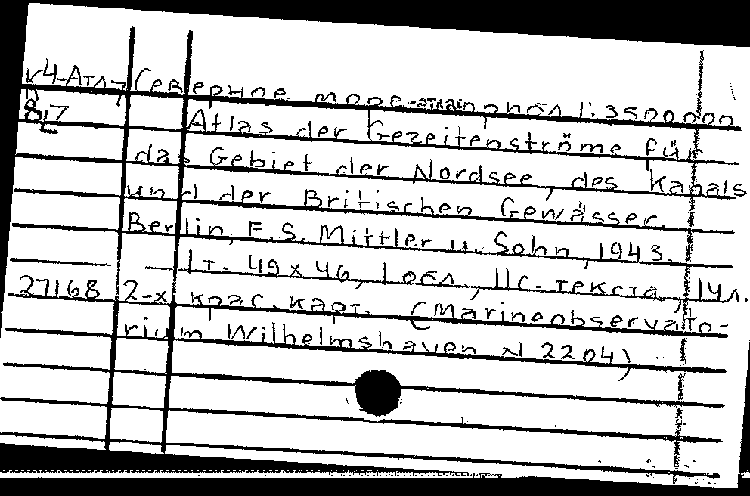 К4-Атл Северное море прибл 1:3500000
8/7 Atlas der Gezeitenströme für
das Gebiet der Nordsee, des Kanals
und der Britischen Gewässer.
Berlin, E.S. Mittler u. Sohn, 1943.
1 т. 49x46, 1 обл, 11с. текста, 14л.
27168 2-х крас. карт. (Marineobservato-
rium Wilhelmshaven N 2204)